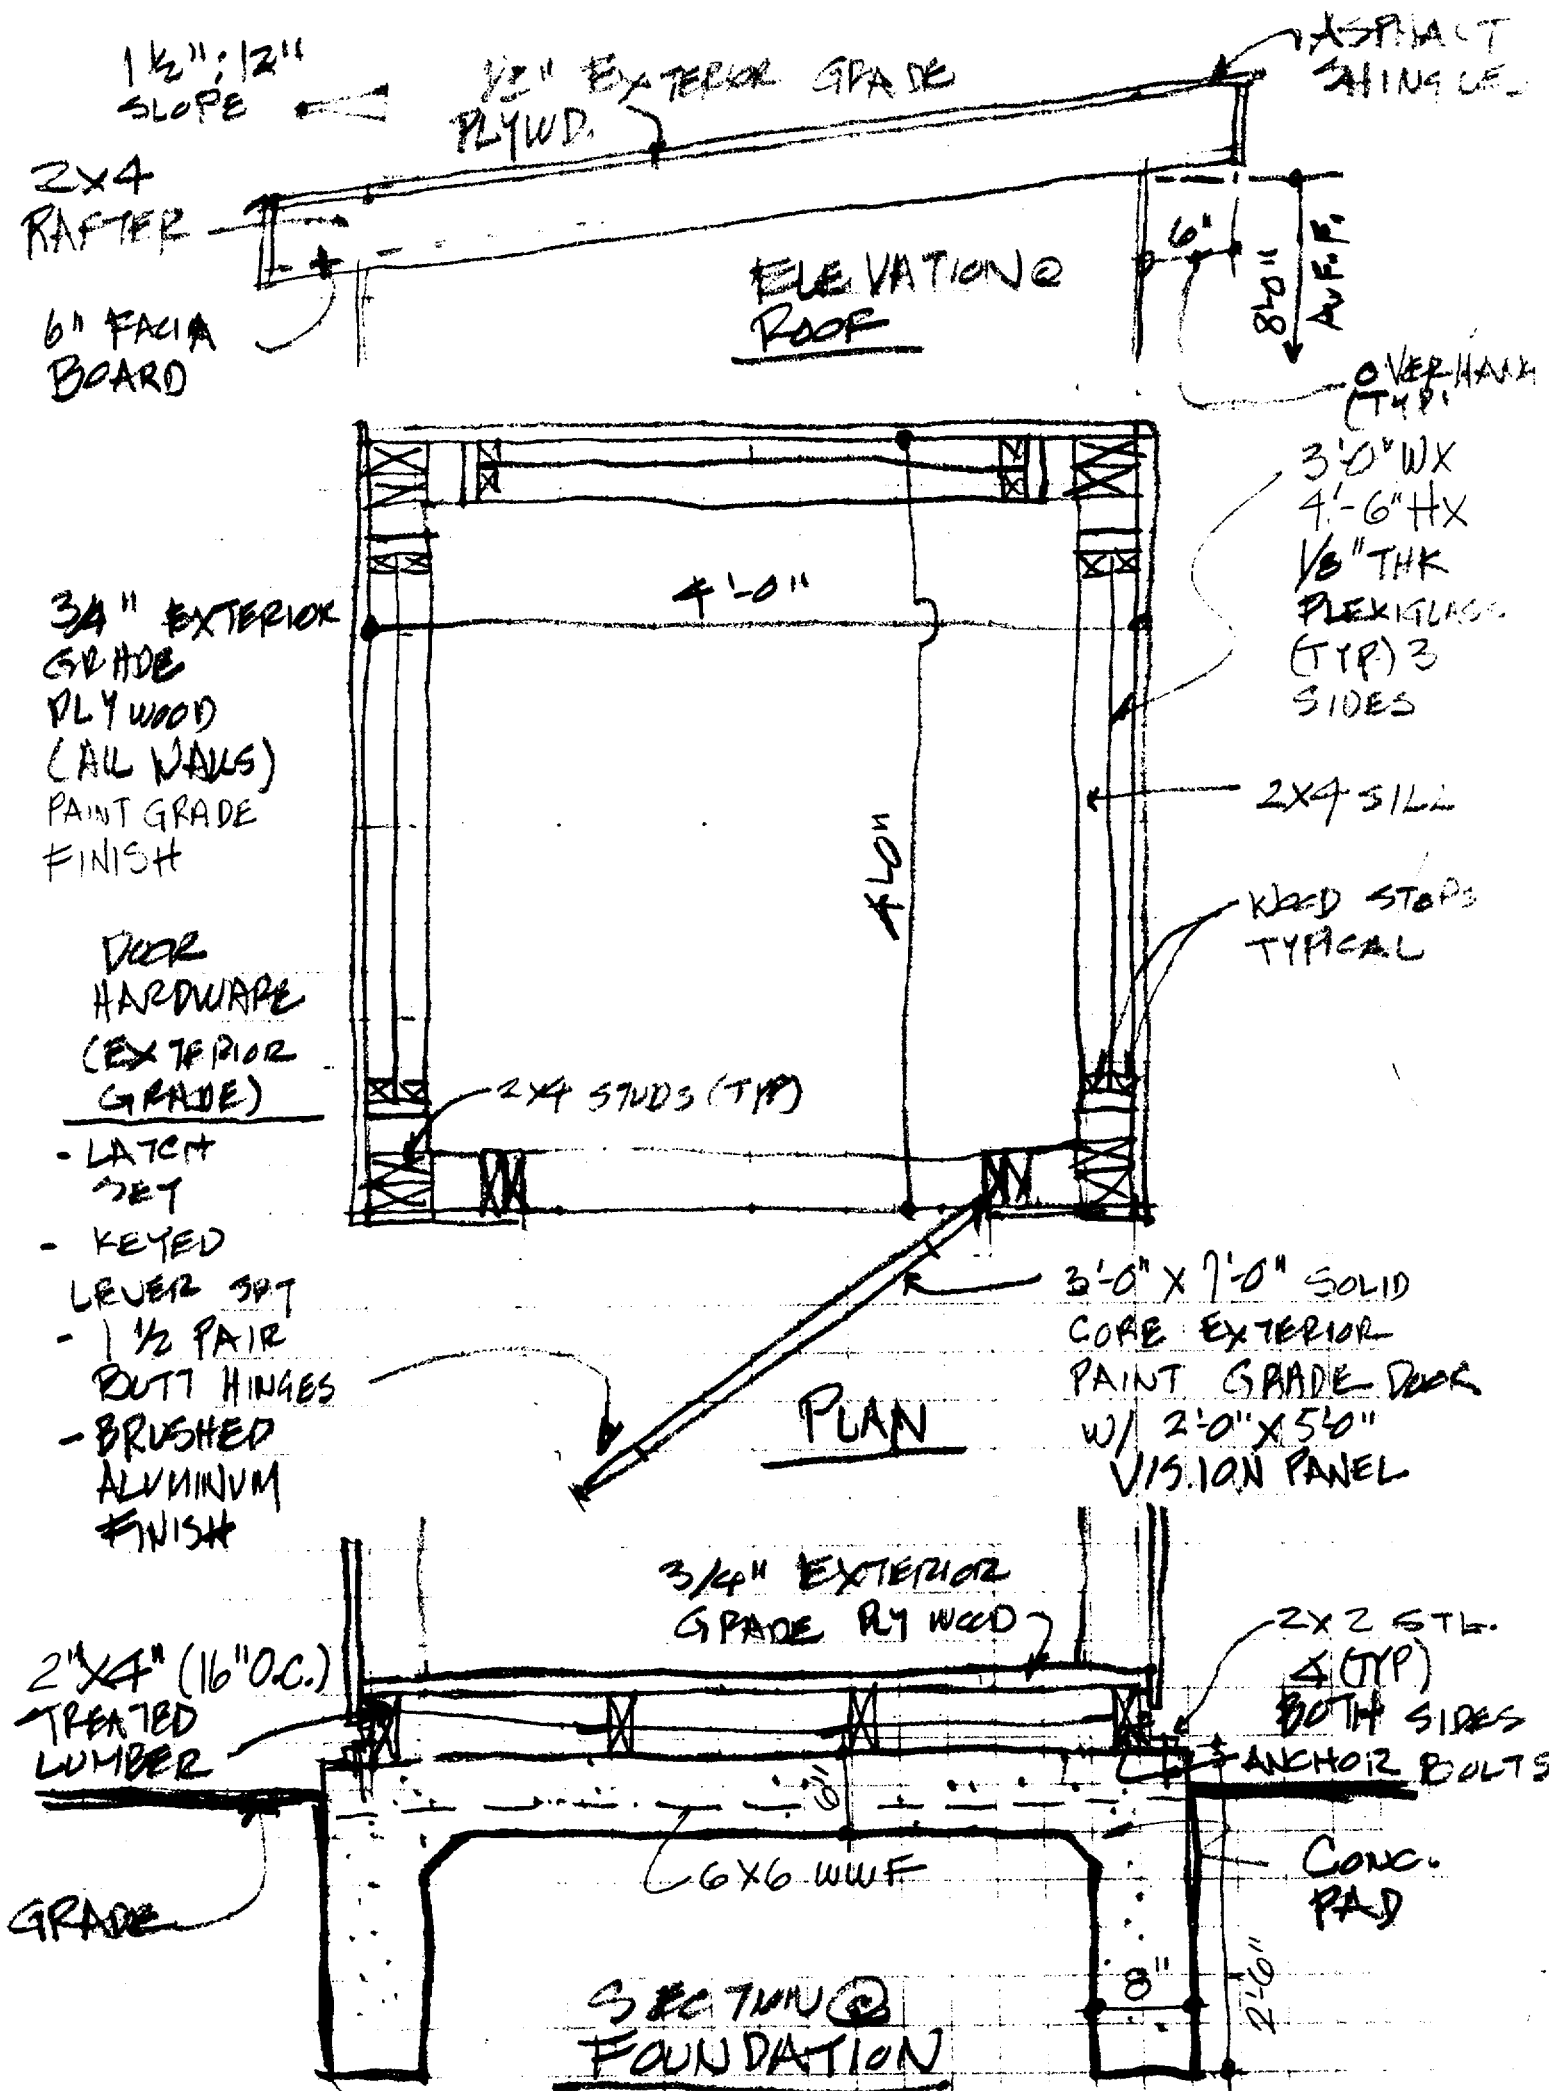 1½":12"
SLOPE
½" EXTERIOR GRADE
PLYWD.
ASPHALT
SHINGLE
2X4
RAFTER
6" FACIA
BOARD
ELEVATION@
ROOF
6"
8'-0"
A.F.F.
OVERHANG
(TYP.
3'-0" WX
4'-6" HX
1/8" THK
PLEXIGLASS
(TYP.) 3
SIDES
3/4" EXTERIOR
GRADE
PLYWOOD
(ALL WALLS)
PAINT GRADE
FINISH
4'-0"
4'-0"
2X4 SILL
WOOD STOPS
TYPICAL
DOOR
HARDWARE
(EXTERIOR
GRADE)
- LATCH
SET
- KEYED
LEVER SET
- 1½ PAIR
BUTT HINGES
- BRUSHED
ALUMINUM
FINISH
2X4 STUDS (TYP)
3'-0" X 7'-0" SOLID
CORE EXTERIOR
PAINT GRADE DOOR
W/ 2'-0" X 5'-0"
VISION PANEL
PLAN
3/4" EXTERIOR
GRADE PLYWOOD
2"X4" (16" O.C.)
TREATED
LUMBER
2X2 STL.
∠ (TYP)
BOTH SIDES
ANCHOR BOLTS
6"
6X6 WWF
GRADE
CONC.
PAD
8"
2'-6"
SECTION@
FOUNDATION